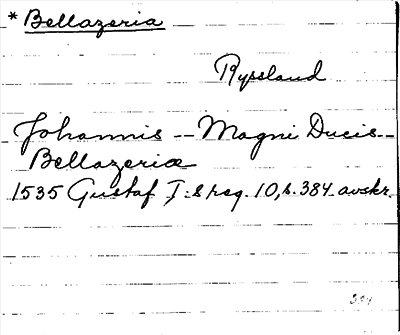 * Bellazeria
Ryssland
Johannis -- Magni Ducis --
Bellazeriæ
1535 Gustaf I:s reg. 10, s. 384 avskr.